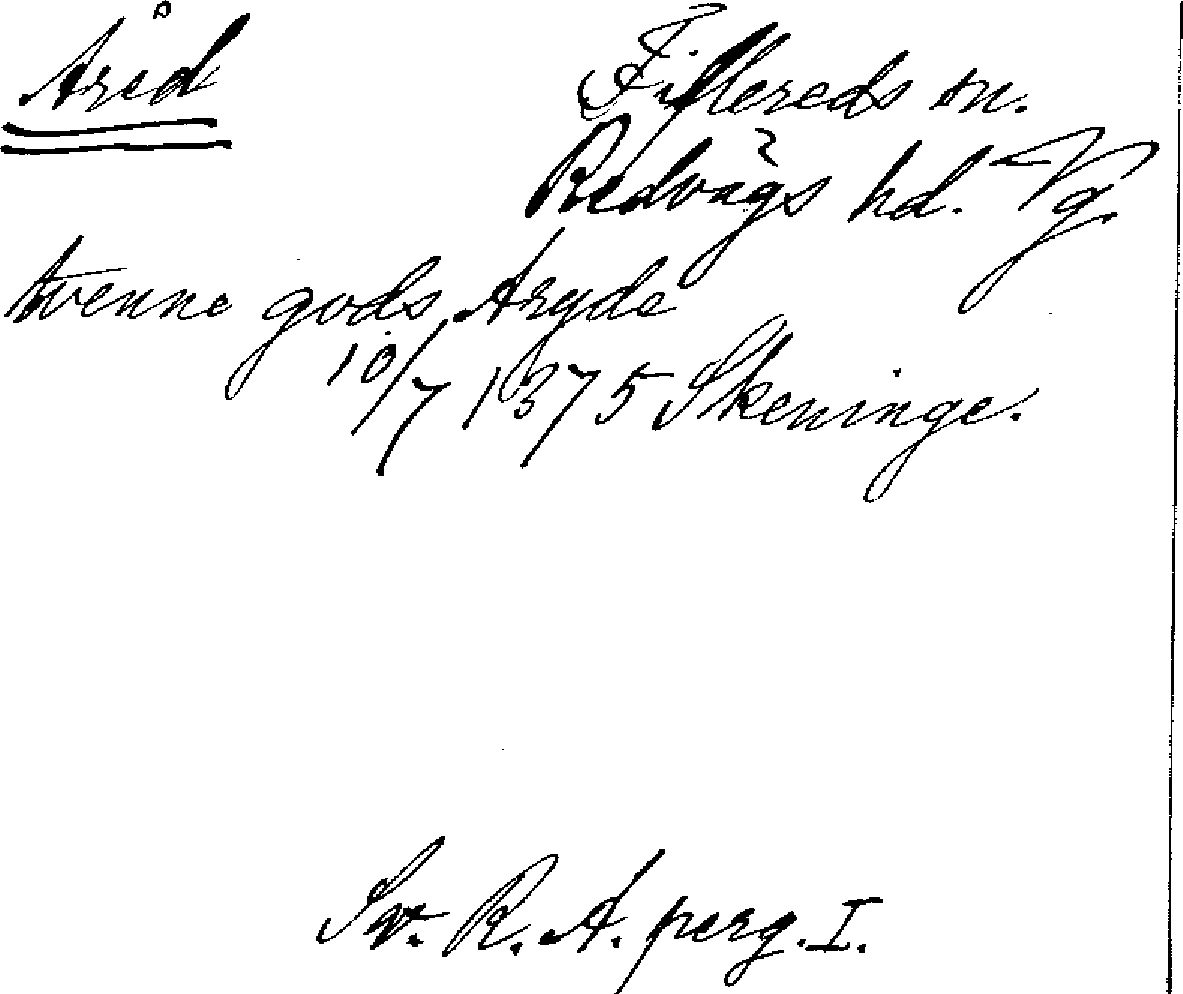 Åred Fiflereds sn.
Redvägs hd. Vg.
tvenne gods Aryde
10/7 1375 Skeninge.
Sv. R. A. perg. I.